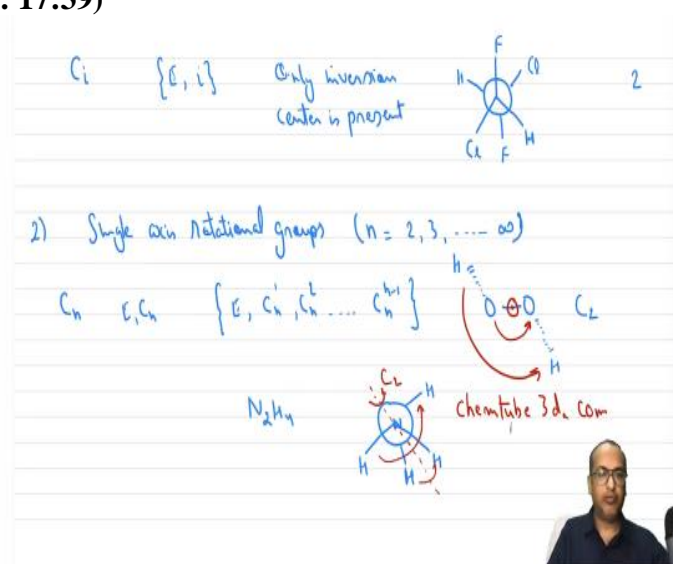 : 17:39)
Ci {E, i} Only inversion center is present F H Cl Cl F H 2
2) Single axis rotational groups (n = 2, 3, ..... ∞)
Cn E, Cn {E, Cn^1, Cn^2 .... Cn^n-1} H O O H C2
N2H4 C2 H N H H H chemtube3d.com